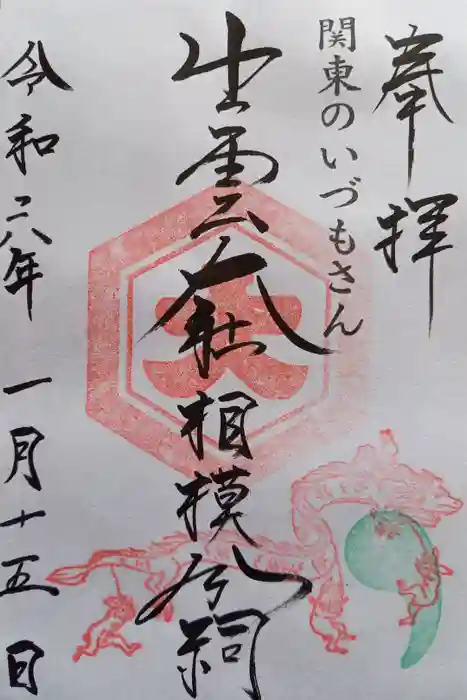 奉拝
関東のいづもさん
出雲大社相模分祠
大
令和六年一月十五日